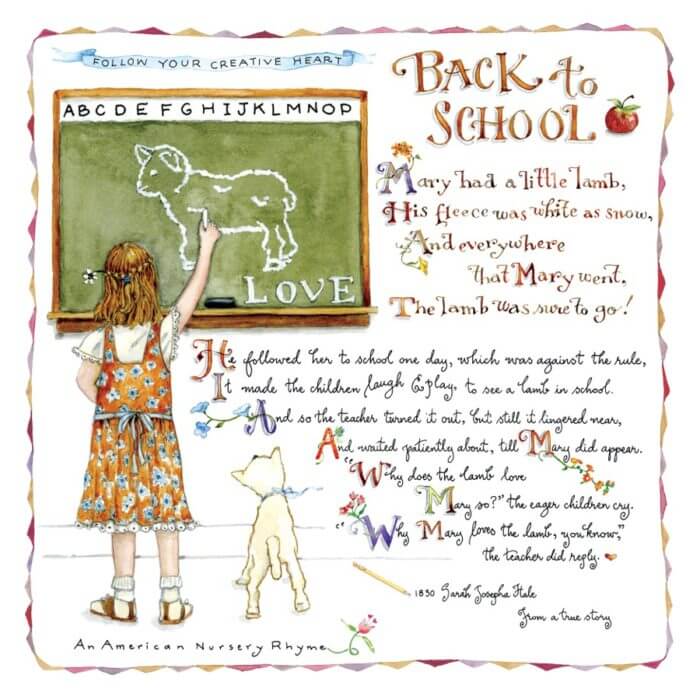 FOLLOW YOUR CREATIVE HEART
ABCDEFGHIJKLMNOP
LOVE
BACK to
SCHOOL
Mary had a little lamb,
His fleece was white as snow,
And everywhere
that Mary went,
The lamb was sure to go!
He followed her to school one day, which was against the rule,
It made the children laugh & play, to see a lamb in school.
And so the teacher turned it out, but still it lingered near,
And waited patiently about, till Mary did appear.
"Why does the lamb love
Mary so?" the eager children cry.
"Why Mary loves the lamb, you know,"
the teacher did reply.
1830 Sarah Josepha Hale
From a true story
An American Nursery Rhyme